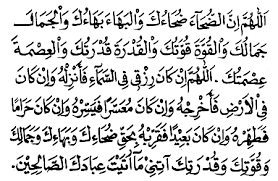 اَللّٰهُمَّ اِنَّ الضُّحَآءَ ضُحَاءُكَ وَالْبَهَاءَ بَهَاءُكَ وَالْجَمَالَ
جَمَالُكَ وَالْقُوَّةَ قُوَّتُكَ وَالْقُدْرَةَ قُدْرَتُكَ وَالْعِصْمَةَ
عِصْمَتُكَ. اَللّٰهُمَّ اِنْ كَانَ رِزْقِى فِى السَّمَآءِ فَأَنْزِلْهُ وَاِنْ كَانَ
فِى اْلاَرْضِ فَأَخْرِجْهُ وَاِنْ كَانَ مُعَسَّرًا فَيَسِّرْهُ وَاِنْ كَانَ حَرَامًا
فَطَهِّرْهُ وَاِنْ كَانَ بَعِيْدًا فَقَرِّبْهُ بِحَقِّ ضُحَاءِكَ وَبَهَاءِكَ وَجَمَالِكَ
وَقُوَّتِكَ وَقُدْرَتِكَ آتِنِىْ مَآ اَتَيْتَ عِبَادَكَ الصَّالِحِيْنَ.